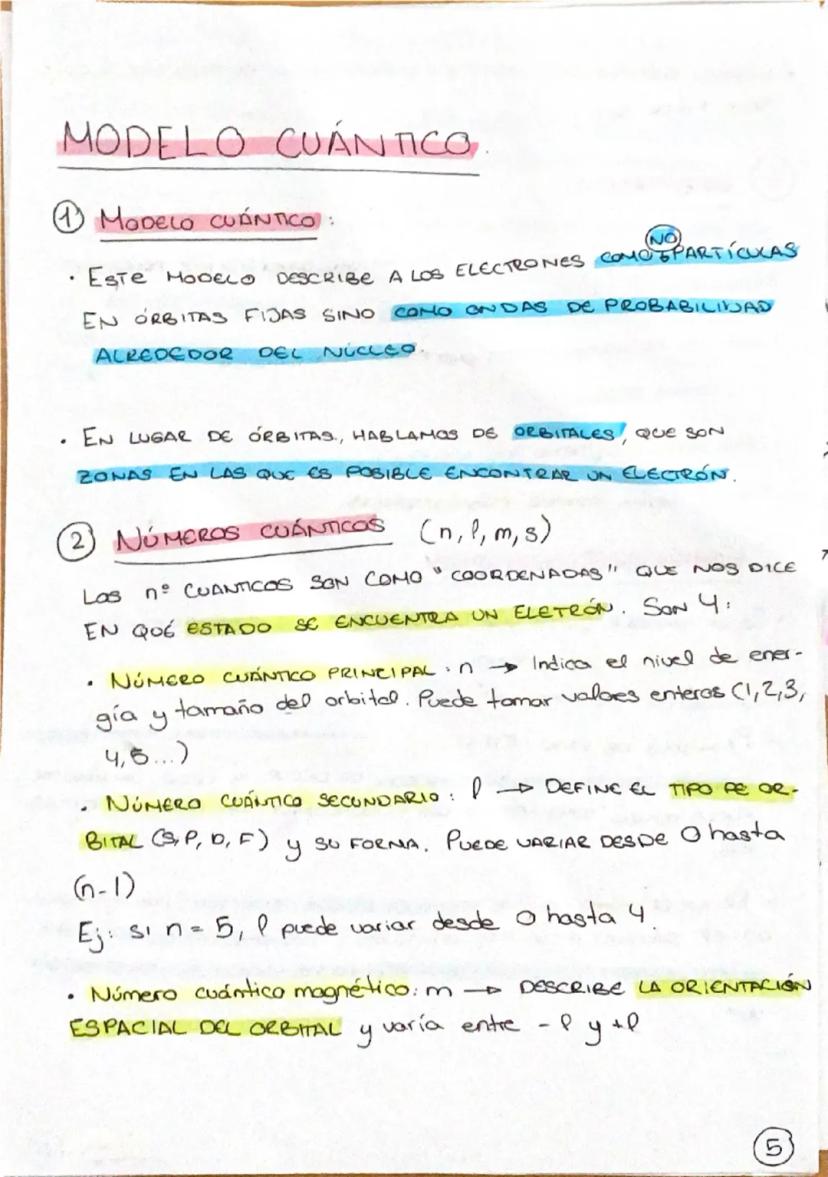 MODELO CUÁNTICO.
1 MODELO CUÁNTICO:
NO
· ESTE MODELO DESCRIBE A LOS ELECTRONES COMO PARTÍCULAS
EN ÓRBITAS FIJAS SINO COMO ONDAS DE PROBABILIDAD
ALREDEDOR DEL NÚCLEO.
· EN LUGAR DE ÓRBITAS, HABLAMOS DE ORBITALES, QUE SON
ZONAS EN LAS QUE ES POSIBLE ENCONTRAR UN ELECTRÓN.
2 NÚMEROS CUÁNTICOS (n, l, m, s)
LOS nº CUANTICOS SON COMO "COORDENADAS" QUE NOS DICE
EN QUÉ ESTADO SE ENCUENTRA UN ELETRÓN. SON 4:
· NÚMERO CUÁNTICO PRINCIPAL: n → Indica el nivel de ener-
gía y tamaño del orbital. Puede tomar valores enteros (1,2,3,
4,5...)
· NÚMERO CUÁNTICO SECUNDARIO: l → DEFINE EL TIPO DE OR-
BITAL (S, P, D, F) y SU FORMA. PUEDE VARIAR DESDE 0 hasta
(n-1)
Ej: si n = 5, l puede variar desde 0 hasta 4.
· Número cuántico magnético: m → DESCRIBE LA ORIENTACIÓN
ESPACIAL DEL ORBITAL y varía entre -l y +l
5